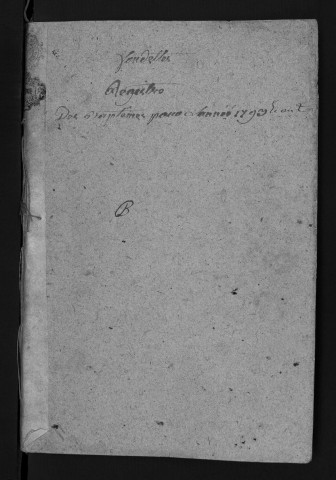 Vendelles
Registre
Des Baptemes pour l'année 1793
B